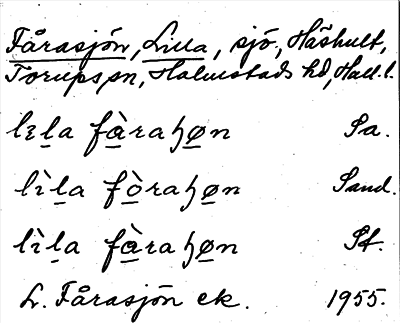 Fårasjön, Lilla, sjö, Häshult,
Torups sn, Halmstads hd, Hall. l.
lɛla fàraꞕøn Sa.
lìla fòraꞕøn Sand.
lìla fàraꞕøn Sf.
L. Fårasjön ek. 1955.